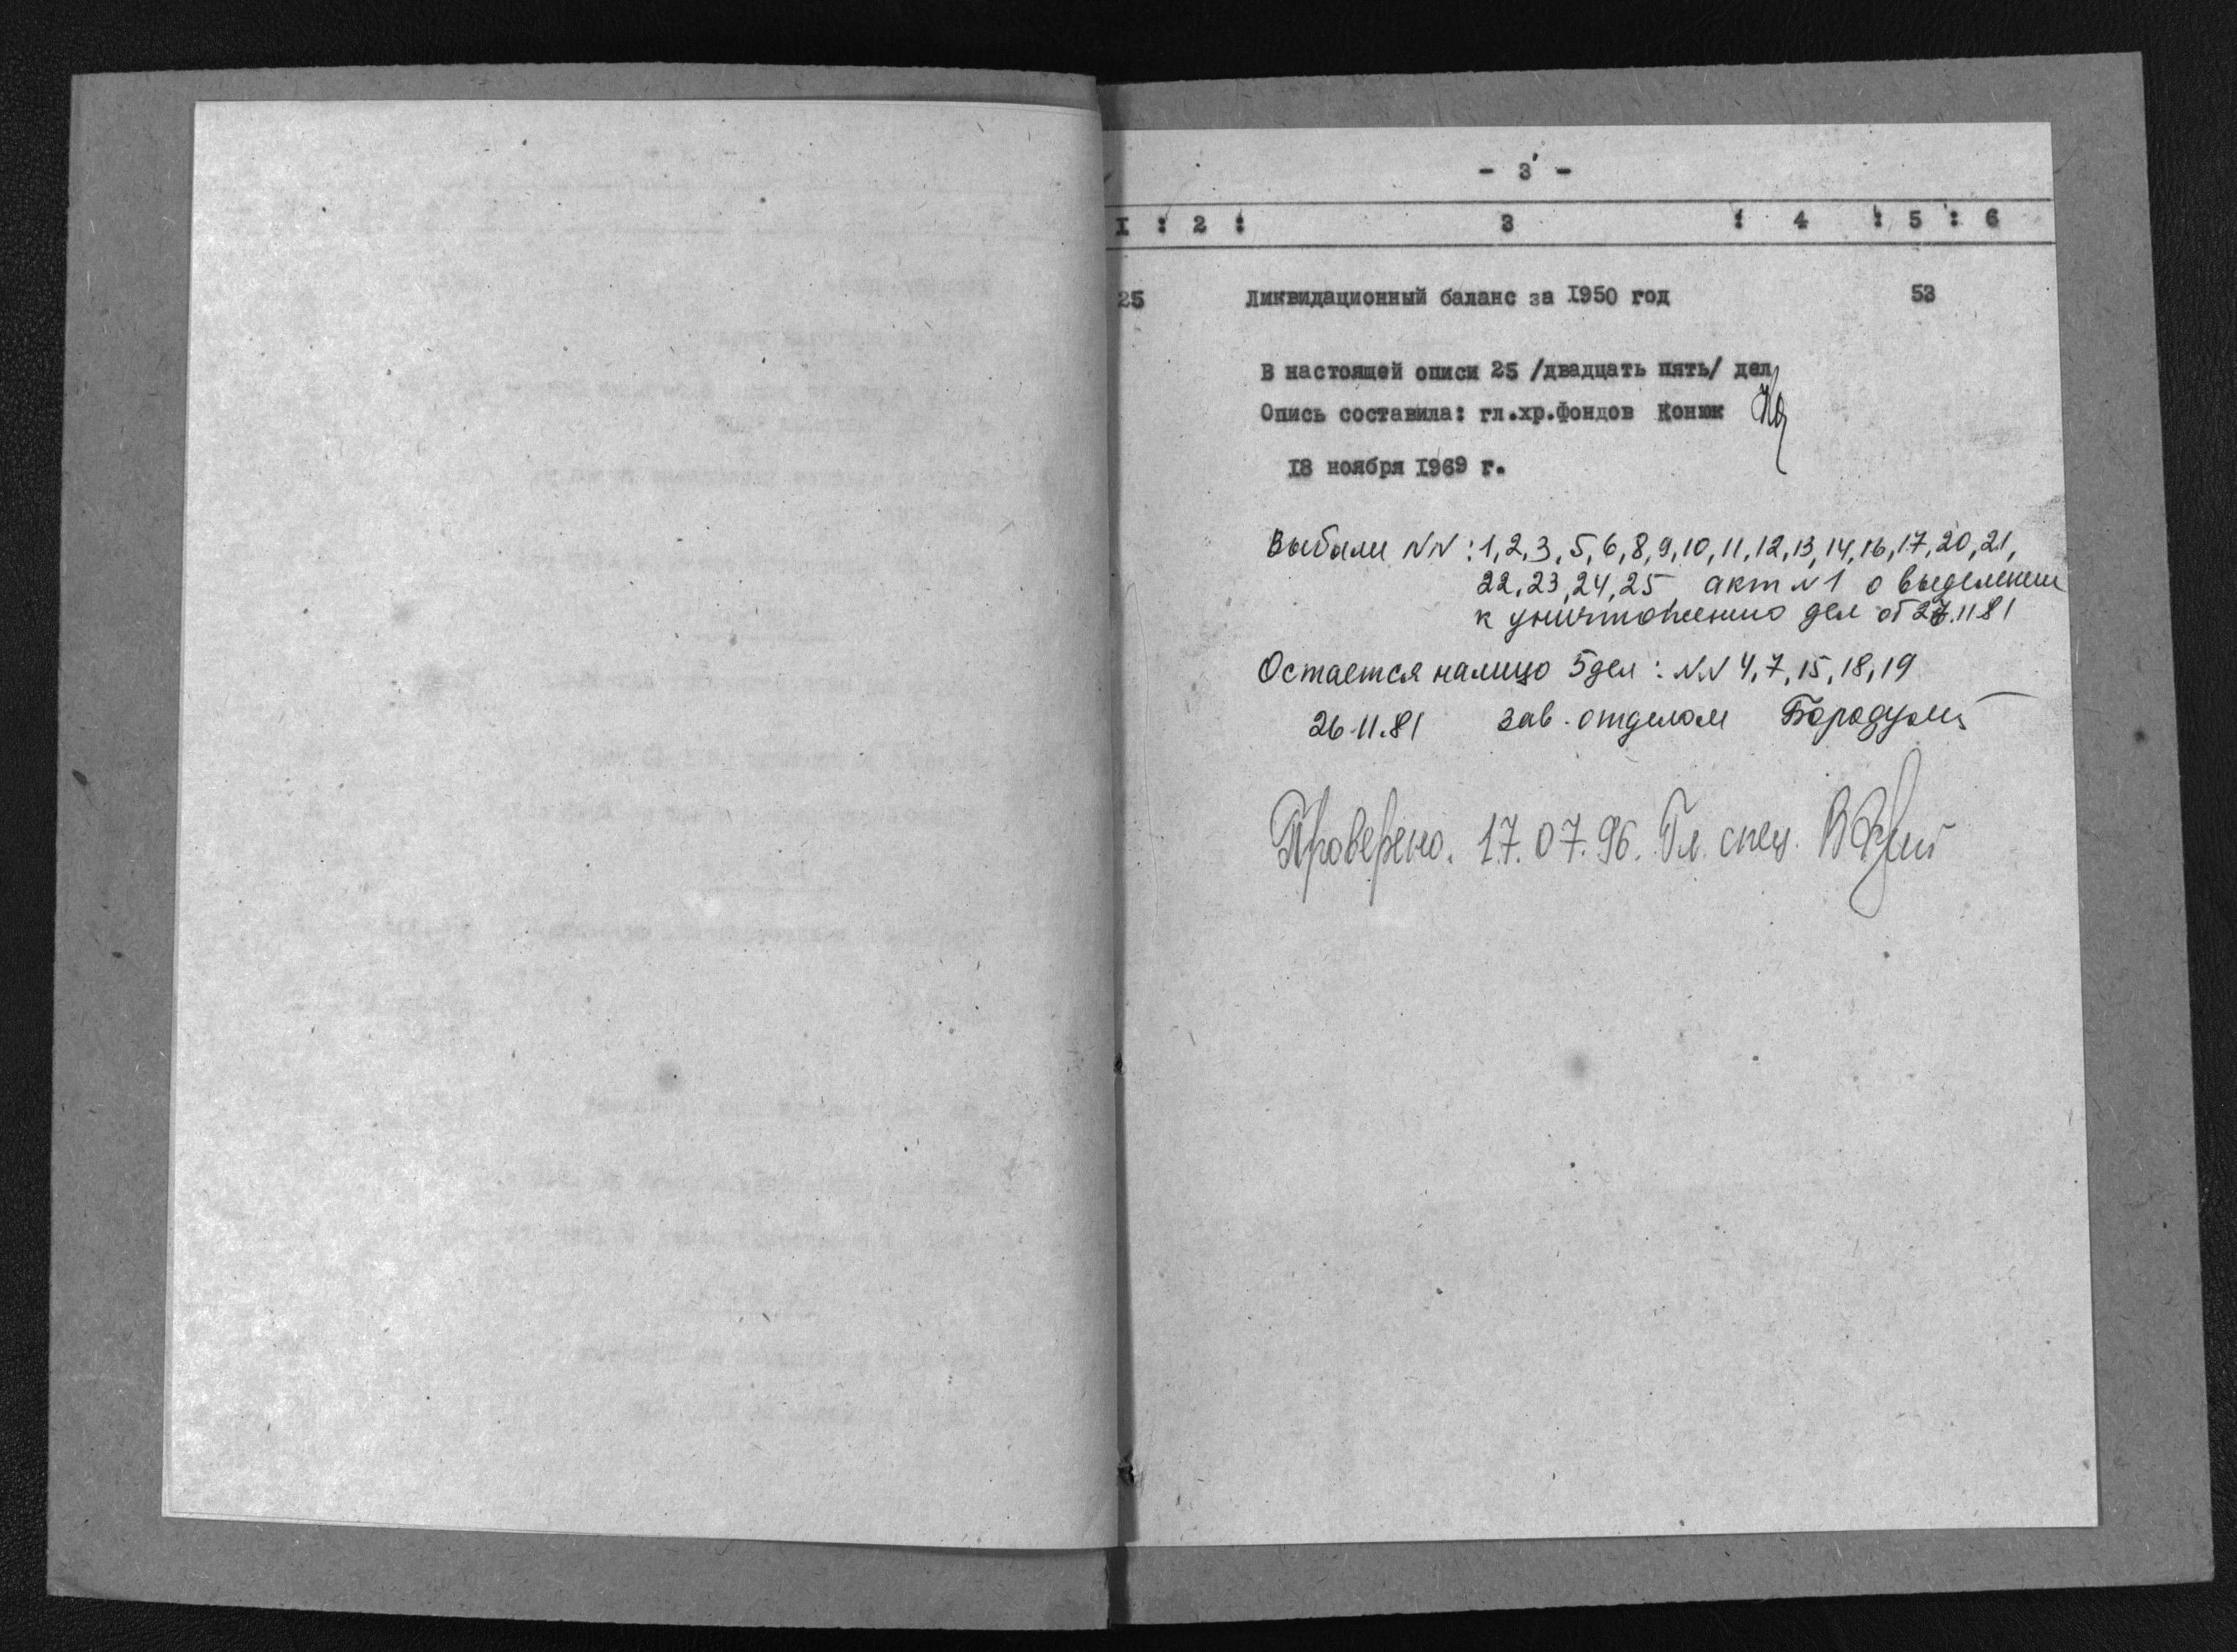 - 3 -
I : 2 : 3 : 4 : 5 : 6
25 Ликвидационный баланс за I950 год 53
В настоящей описи 25 /двадцать пять/ дел
Опись составила: гл.хр.фондов Конюк
I8 ноября I969 г.
Выбыли NN: 1, 2, 3, 5, 6, 8, 9, 10, 11, 12, 13, 14, 16, 17, 20, 21,
22, 23, 24, 25 акт N1 о выделении
к уничтожению дел от 27.11.81
Остается налицо 5 дел: NN 4, 7, 15, 18, 19
26.11.81 Зав. отделом
Проверено. 17.07.96. Гл. спец.